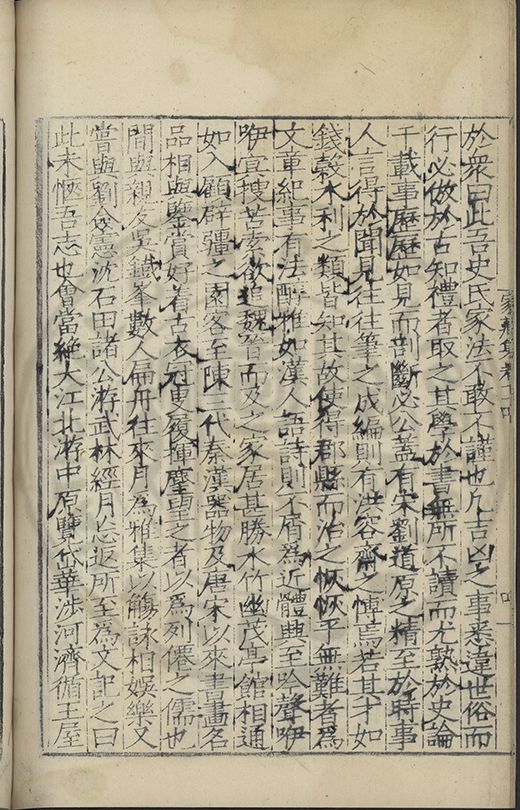 於衆曰此吾史氏家法不敢不謹也凡吉凶之事悉違世俗而
行必倣於古知禮者取之其學於書無所不讀而尤熟於史論
千載事歷歷如見而剖斷必公蓋有宋劉道原之精至於時事
人言得於聞見往往筆之成編則有洪容齋之博焉若其才如
錢穀水利之類皆知其故使得郡縣而治之恢恢乎無難者爲
文章紀事有法醇雅如漢人語詩則不屑爲近體興至吟聲咿
咿冥搜苦索欲追魏晉而及之家居甚勝水竹幽茂亭館相通
如入顧辟疆之園客至陳三代秦漢器物及唐宋以來書畫名
品相與鑒賞好着古衣冠曳履揮麈望之者以爲列僊之儒也
間與親友吳鐵峯數人扁舟往來月爲雅集以觴詠相娛樂又
嘗與劉僉憲沈石田諸公游武林經月忘返所至爲文記之曰
此未愜吾志也會當絶大江北游中原覽岱華涉河濟循王屋
家藏集卷